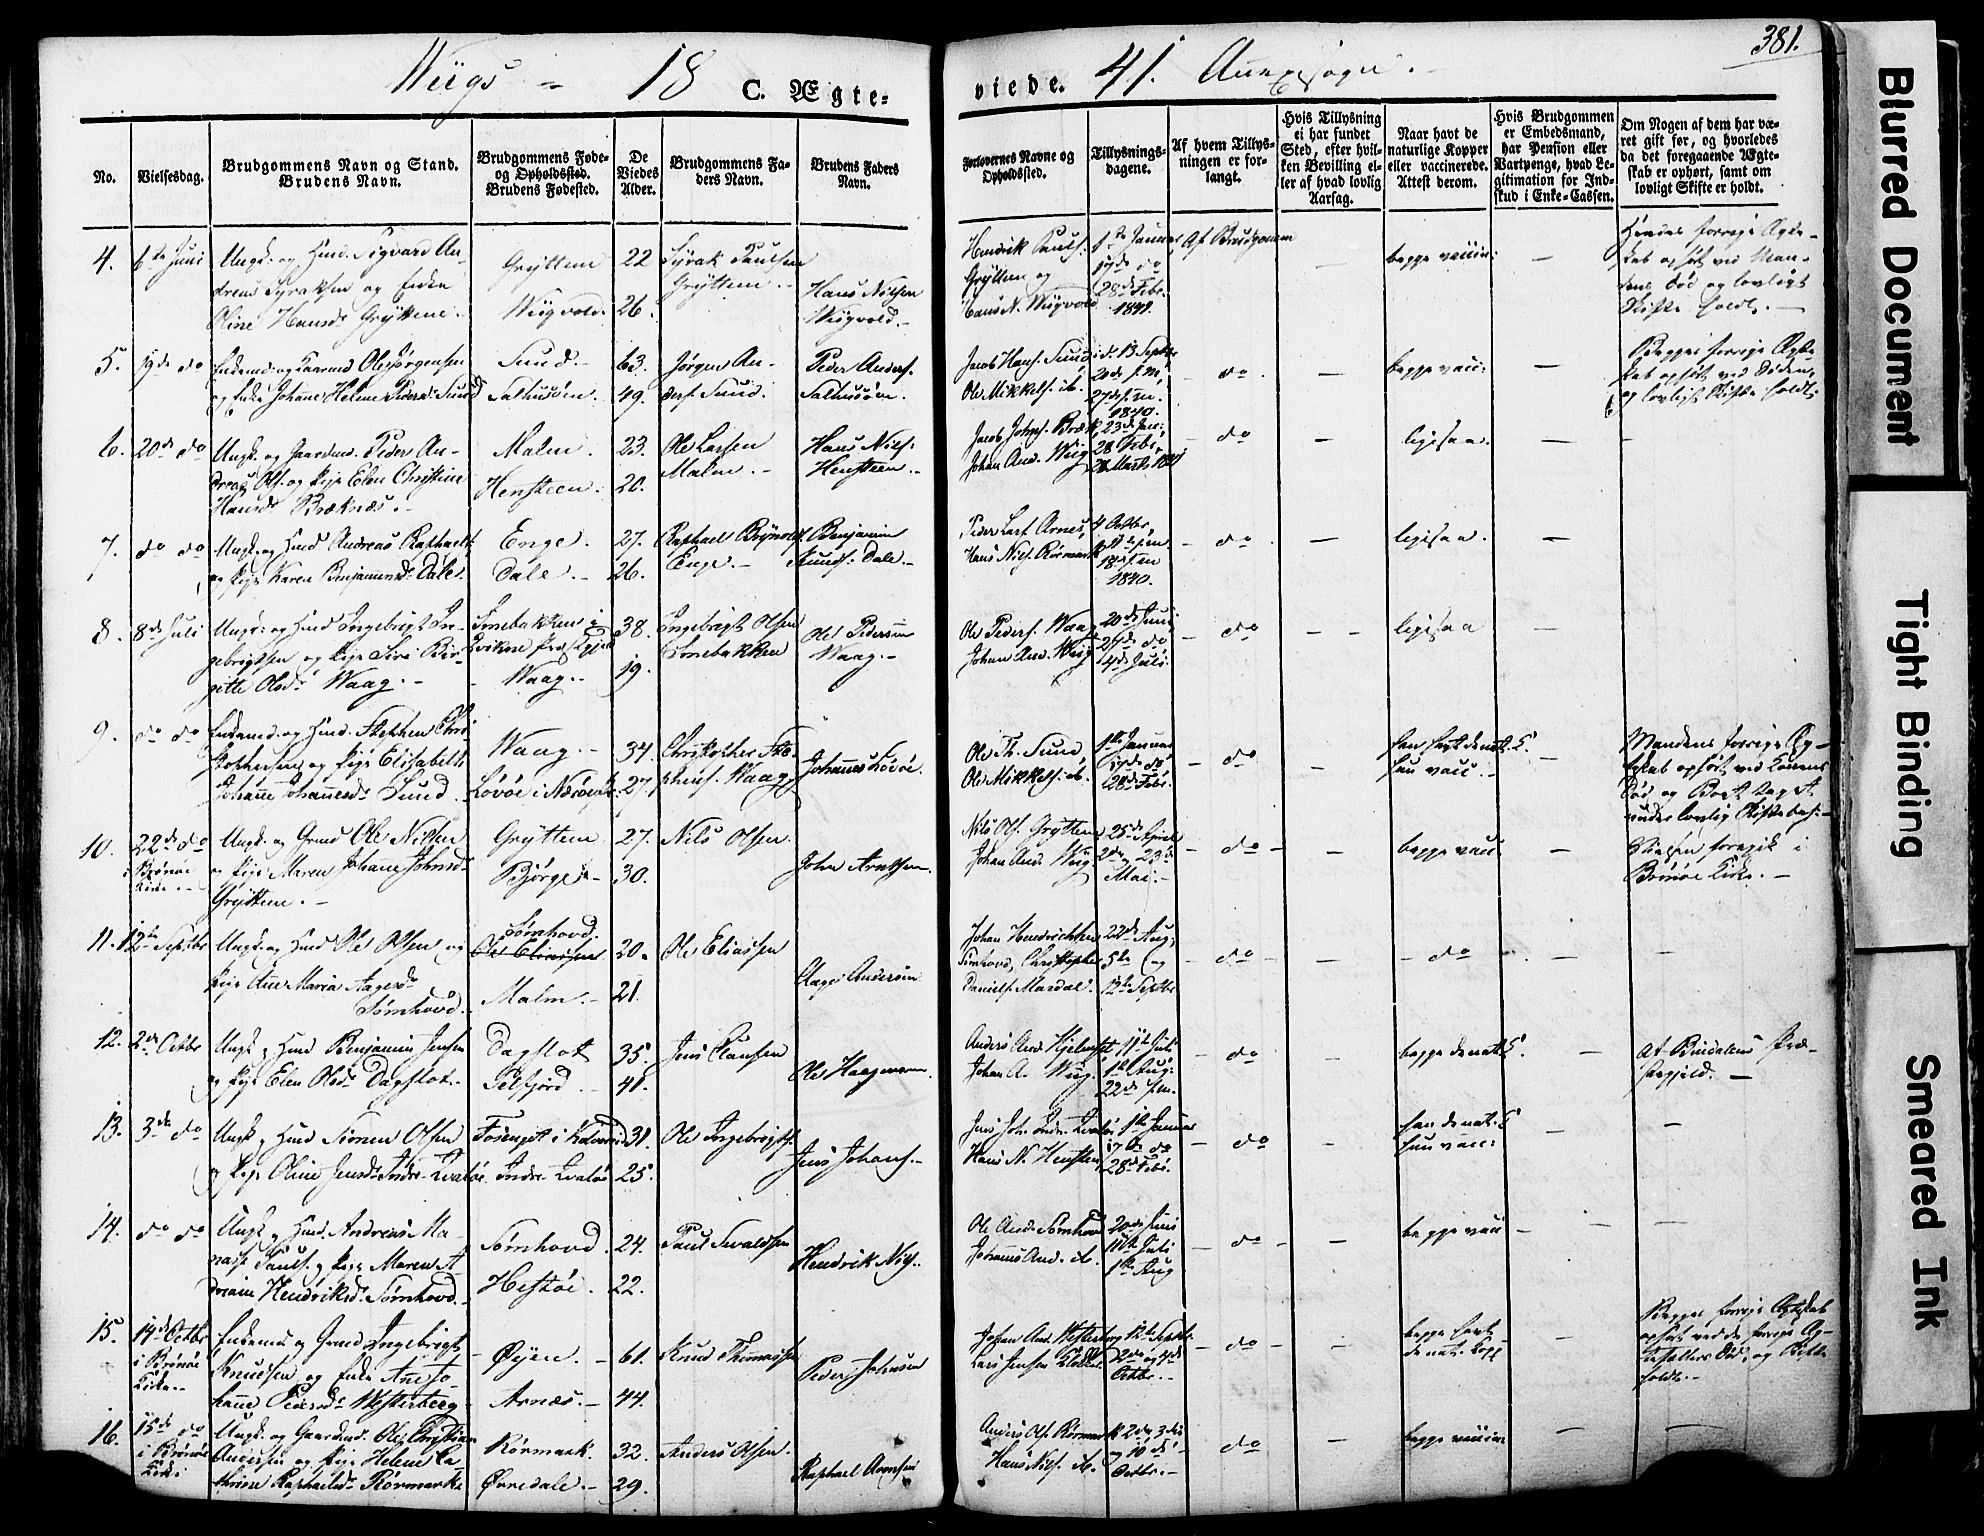 Wiigs 18 C. Ægte-
viede. 41. Annexsogn.
381.
No.
Vielsesdag.
Brudgommens Navn og Stand.
Brudens Navn.
Brudgommens Føde-
og Opholdssted.
Brudens Fødested.
De
Viedes
Alder.
Brudgommens Fa-
ders Navn.
Brudens Faders
Navn.
Forlovernes Navne og
Opholdssted.
Tillysnings-
dagene.
Af hvem Tillys-
ningen er for-
langt.
Hvis Tillysning
ei har fundet
Sted, efter hvil-
ken Bevilling el-
ler af hvad lovlig
Aarsag.
Naar havt de
naturlige Kopper
eller vaccinerede.
Attest derom.
Hvis Brudgommen
er Embedsmand,
har Pension eller
Vartpenge, hvad Le-
gitimation for Ind-
skud i Enke-Cassen.
Om Nogen af dem har væ-
ret gift før, og hvorledes
da det foregaaende Ægte-
skab er ophørt, samt om
lovligt Skifte er holdt.
4. 6te Juni
Ungk. og Huusd. Sigvard An-
dreas Syraksen og Enke
Oline Hansd. Gryttene.
Gryttene 22
Wiigvold. 26.
Syrak Paulsen
Gryttene.
Hans Nilsen
Wiigvold.
Hendrik Pauls.
Gryttem og
Hans N. Wiigvold
1ste Januar,
17de do
28de Febr.
1841.
Af Brudgommen
begge vaccin:
Hendes forrige Ægte-
skab ophørt ved Man-
dens Død og lovligt
Skifte holdt.
5. 19de do
Enkemd. og Gaardmd Ole Jørgensen
og Enke Johanne Helene Pedersd. Sund
Sund. 63.
Salhusøen. 49.
Jørgen An-
ders. Sund.
Peder Anders.
Salhusøen.
Jacob Hans. Sund
Ole Mikkels. ib.
d. 13 Septbr
20de s.m.
27de s.m.
1840.
do
begge vacc:
Begges forrige Ægte-
skab ophørt ved Døden,
og lovligt Skifte holdt.
6. 20de do
Ungk. og Gaardmd. Peder An-
dreas Ols. og Pige Elen Christine
Hansd. Bræknæs.
Malm. 23.
Hensteen. 20.
Ole Larsen
Malm.
Hans Niels.
Hensteen.
Jacob Johns. Bræk.
Johan And. Wiig
23de Jan:
28 Febr.
21 Marts 1841
do
ligesaa.
7. do do
Ungk. og Husd Andreas Raphaels.
og Pige Karen Benjaminsd. Dale.
Enge. 27.
Dale. 26.
Raphael Brynilds.
Enge.
Benjamin
Knuds. Dale.
Peder Lars. Arnes,
Hans Niels. Rørmark
4 Octbr,
11te s.m.
18de s.m
1840.
do
ligesaa.
8. 8de Juli
Ungk. og Husd Ingebrigt In-
gebrigtsen og Pige Siri Bir-
gitte Olsd. Waag.
38.
Waag. 19.
Ingebrigt Olsen
Ole Pedersen
Waag.
Ole Peders. Waag
Johan And. Wiig
20de Juni
27de do
4de Juli.
do
ligesaa
9. do do
Enkemd. og Husd. Stephen Chri-
stophersen og Pige Elisabeth
Johanne Johannesd. Sund.
Waag. 34.
Løvøe i Nærøe 27.
Christopher Ste-
phens. Waag
Johannes Løvøe.
Ole Th. Sund
Ole Mikkels. ib.
1ste Januar
17de do
28de Febr.
do
han havt de nat. K.
hun vacc.
Mandens forrige Æg-
teskab ophørt ved Konens
Død, og Boet tages
under lovlig Skiftebeh:
10. 22de do
i Brønøe
Kirke.
Ungk. og Grmd Ole Nilsen
og Pige Maren Johanne Johnsd.
Gryttene.
Gryttene 27.
Bjørge 30.
Nils Olsen.
John Arntsen.
Nils Ols. Gryttene
Johan And. Wiig.
25de April
2den og 23de
Mai.
do
begge vacc:
Vielsen foregik i
Brønøe Kirke.
11. 12te Septbr
Ungk. og Husd Ole Olsen og
Pige Ane Maria Aagesd.
Sømhovd.
Sømhovd.
Ole Eliassen 20.
Malm. 21.
Ole Eliassen
Aage Andersen
Johan Hendrichsen
Sømhovd, Christopher
Daniels. Mardal.
22de Aug:
5te og
12te Septbr
do
do
12. 2den Octbr
Ungk. og Husd Benjamin Jensen
og Pige Elen Olsd. Dagslot.
Dagslot 35.
Selfjord. 41.
Jens Clausen
Ole Haagensen.
Anders And. Hjelmset
Johan A. Wiig.
11te Juli
1ste Aug:
22de s.m.
do
begge de nat. K.
Af Bindalens Præ-
stegjeld.
13. 3die do
Ungk. og Husd Simen Olsen
og Pige Oline Jensd. Indre-Kvaløe.
31.
Indre Kvaløe 25.
Ole Ingebrigts.
Jens Johans.
Hans N. Hensteen
1ste Januar
17de do
28de Febr.
do
han de nat. K
hun vacc:
14. do do
Ungk. og Husd. Andreas Ma-
nasse Pauls. og Pige Maren A-
driane Hendriksd. Sømhovd.
Sømhovd. 24.
Hestøe. 22.
Paul Sivaldsen
Hendrik Niels.
Ole And. Sømhovd
Johannes And. ib.
20de Juni
11te Juli
1ste Aug
do
begge vacc
15. 14de Octbr
i Brønøe
Kirke.
Enkemd og Grmd Ingebrigt
Knudsen og Enke Ane Jo-
hanne Pedersd. Westerberg
Øyen. 61.
Arnæs. 44.
Knud Thomassen
Peder Johnsen
Johan And. Westerberg
Lars Jensen
12te Septbr
2den og 4de
Octbr.
do
begge havt
de nat. Kopp
Begges forrige Ægteskab
ophørt ved de forrige Æg-
tefællers Død, og Skifte
holdt.
16. 15de do
i Brønøe
Kirke
Ungk. og Gaardmd. Ole Christian
Andersen og Pige Helene Ca-
thrine Raphaelsd. Rørmark.
Rørmark. 32.
Øvredale. 29.
Anders Olsen.
Raphael Arntsen
Anders Ols. Rørmark
Hans Niels. ib.
2den 3die
og 10de
Octbr.
do
begge vaccin
Blurred Document
Tight Binding
Smeared Ink